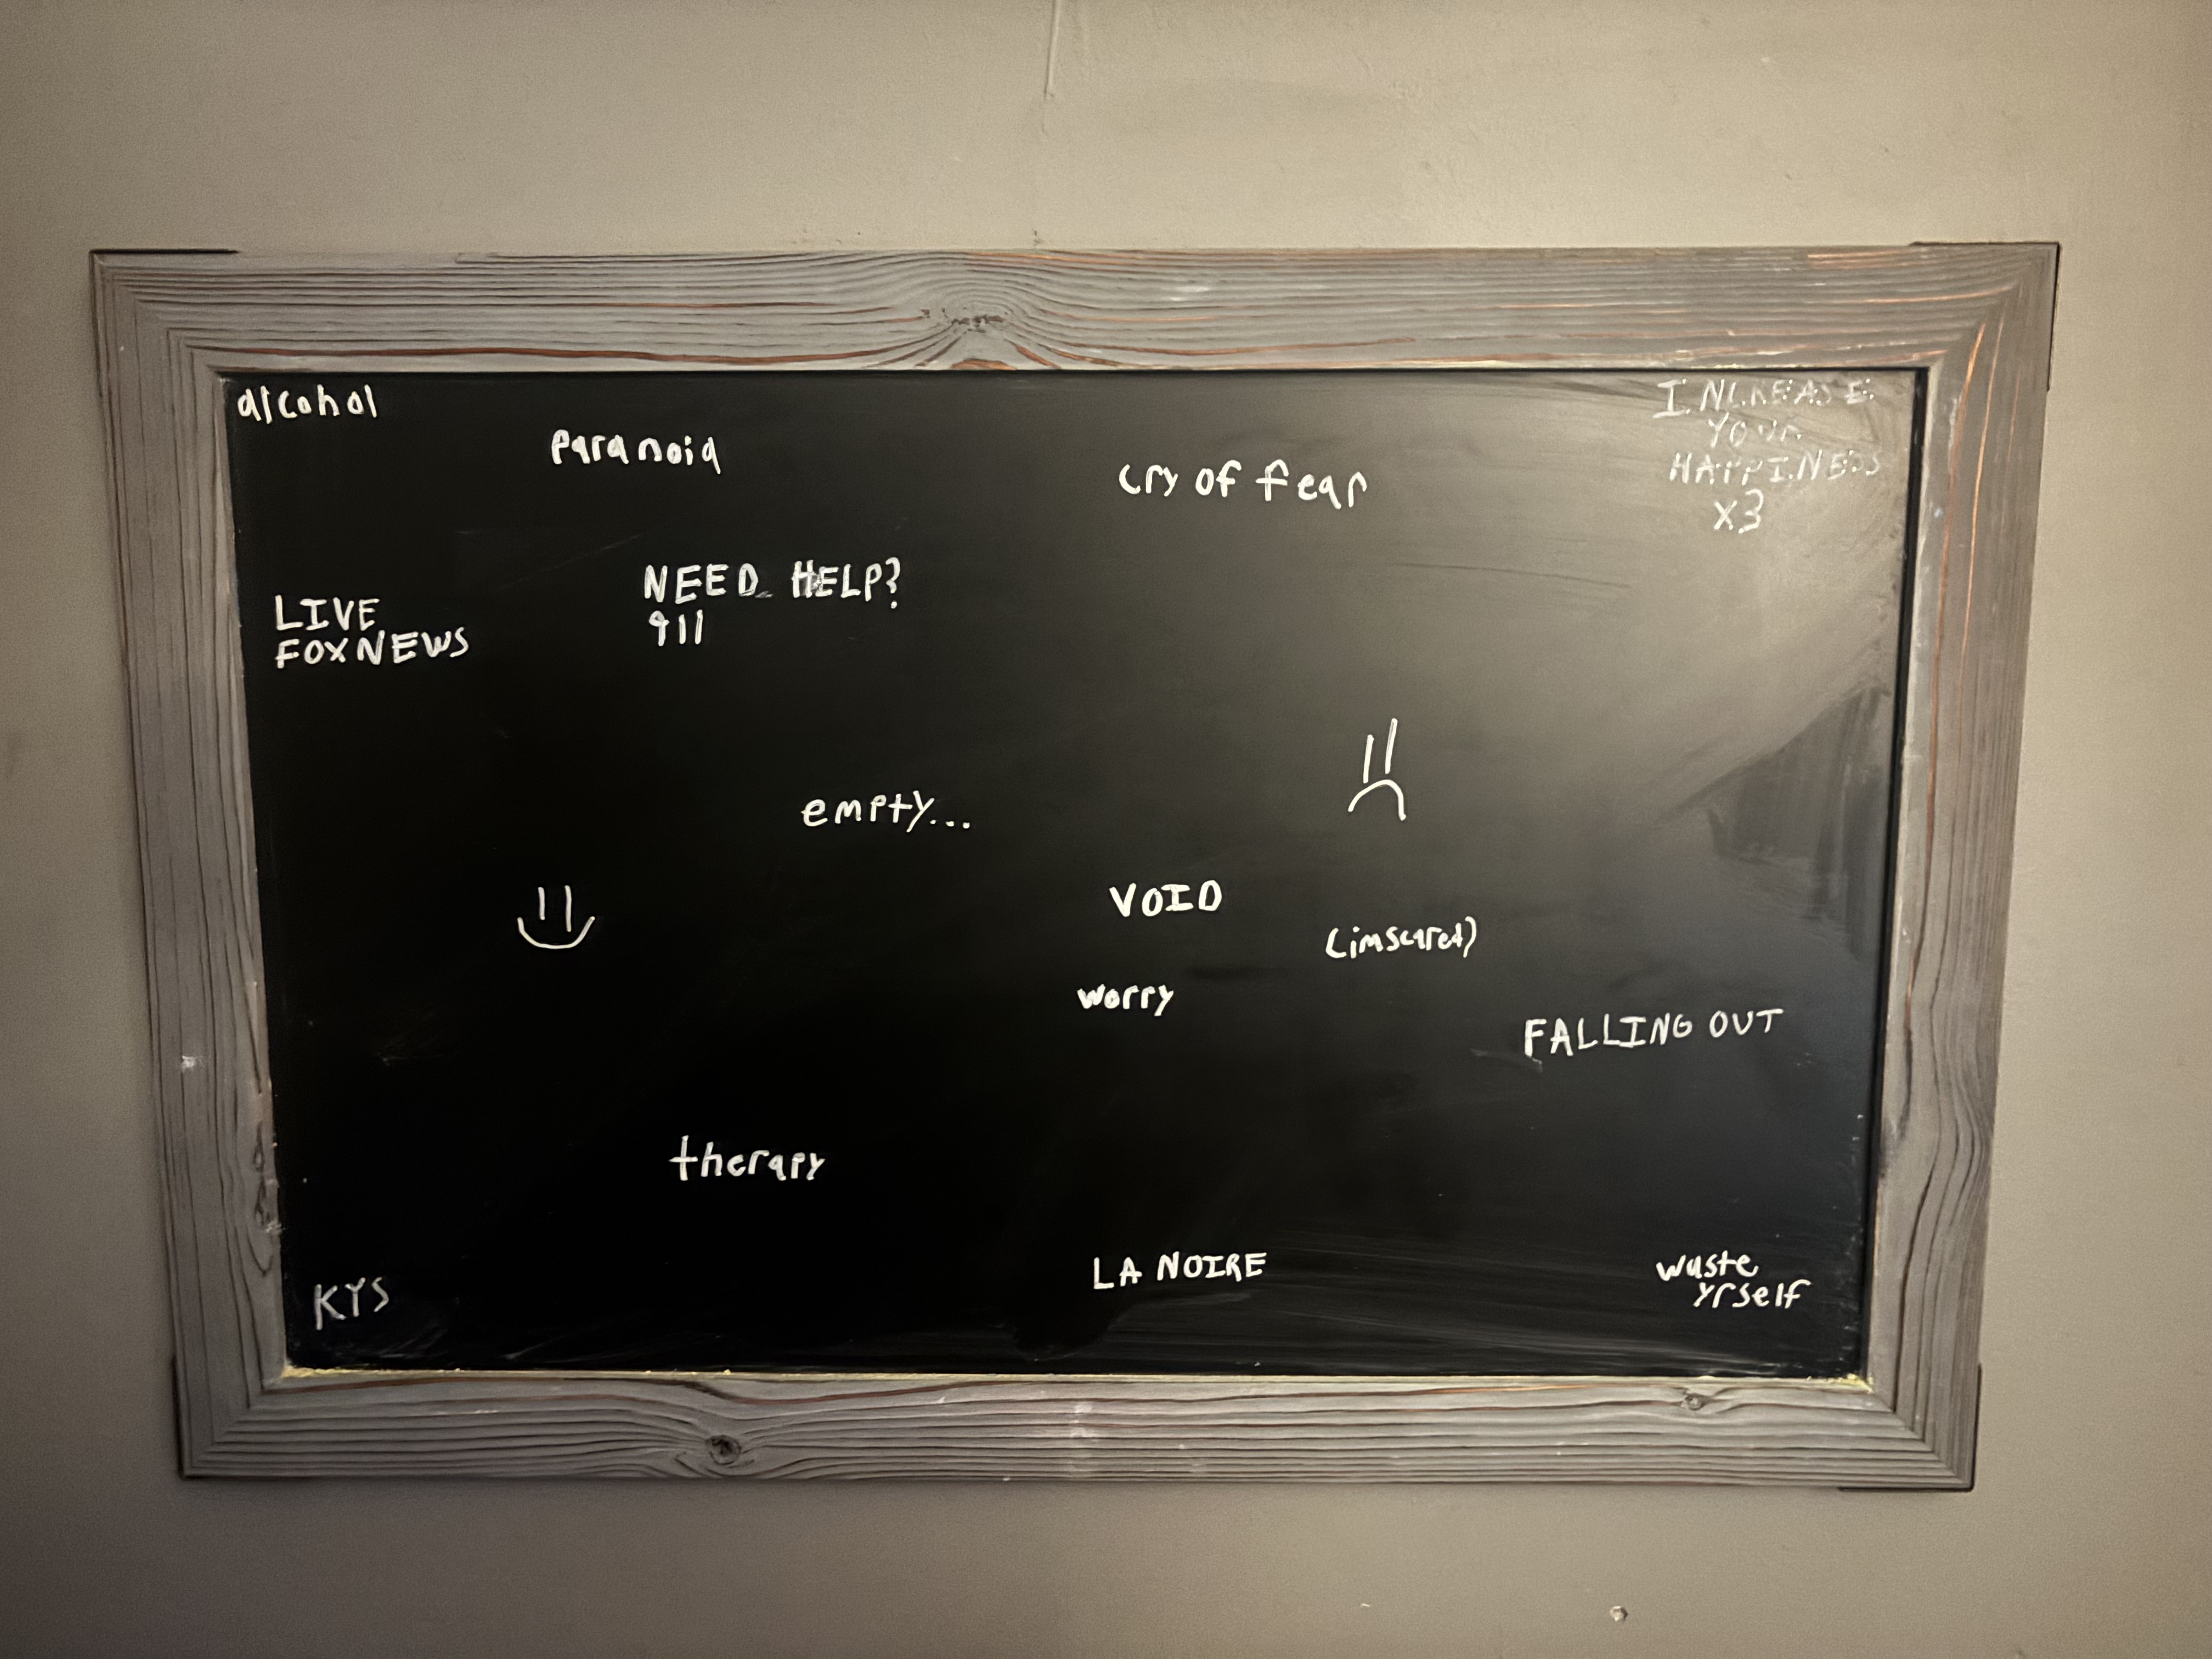 alcohol
paranoid
cry of fear
INCREASE
YOUR
HAPPINESS
X3
NEED HELP?
911
LIVE
FOXNEWS
empty...
VOID
(imscared)
worry
FALLING OUT
therapy
KYS
LA NOIRE
waste
yrself